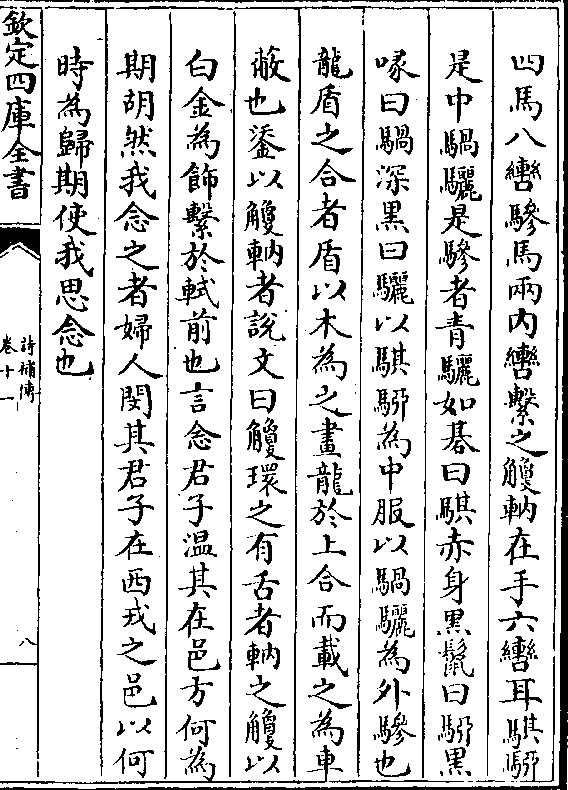 四馬八轡驂馬兩内轡繫之觼軜在手六轡耳騏駵
是中騧驪是驂者青驪如碁曰騏赤身黑鬛曰駵黑
喙曰騧深黑曰驪以騏駵為中服以騧驪為外驂也
龍盾之合者盾以木為之畫龍於上合而載之為車
蔽也鋈以觼軜者說文曰觼環之有舌者軜之觼以
白金為飾繫於軾前也言念君子温其在邑方何為
期胡然我念之者婦人閔其君子在西戎之邑以何
時為歸期使我思念也
欽定四庫全書
詩補傳
卷十一
八